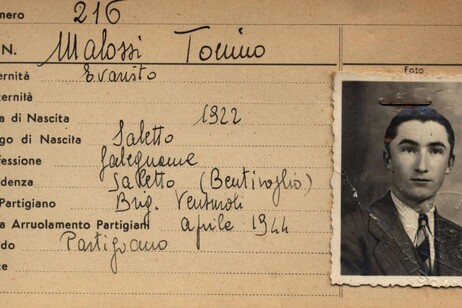 umero 216
N. Malossi Tonino Foto
ernità Evaristo
ternità
a di Nascita 1922
ogo di Nascita Saletto
fessione falegname
denza Saletto (Bentivoglio)
Partigiano Brig. Venturoli
a Arruolamento Partigiani aprile 1944
do Partigiano
te